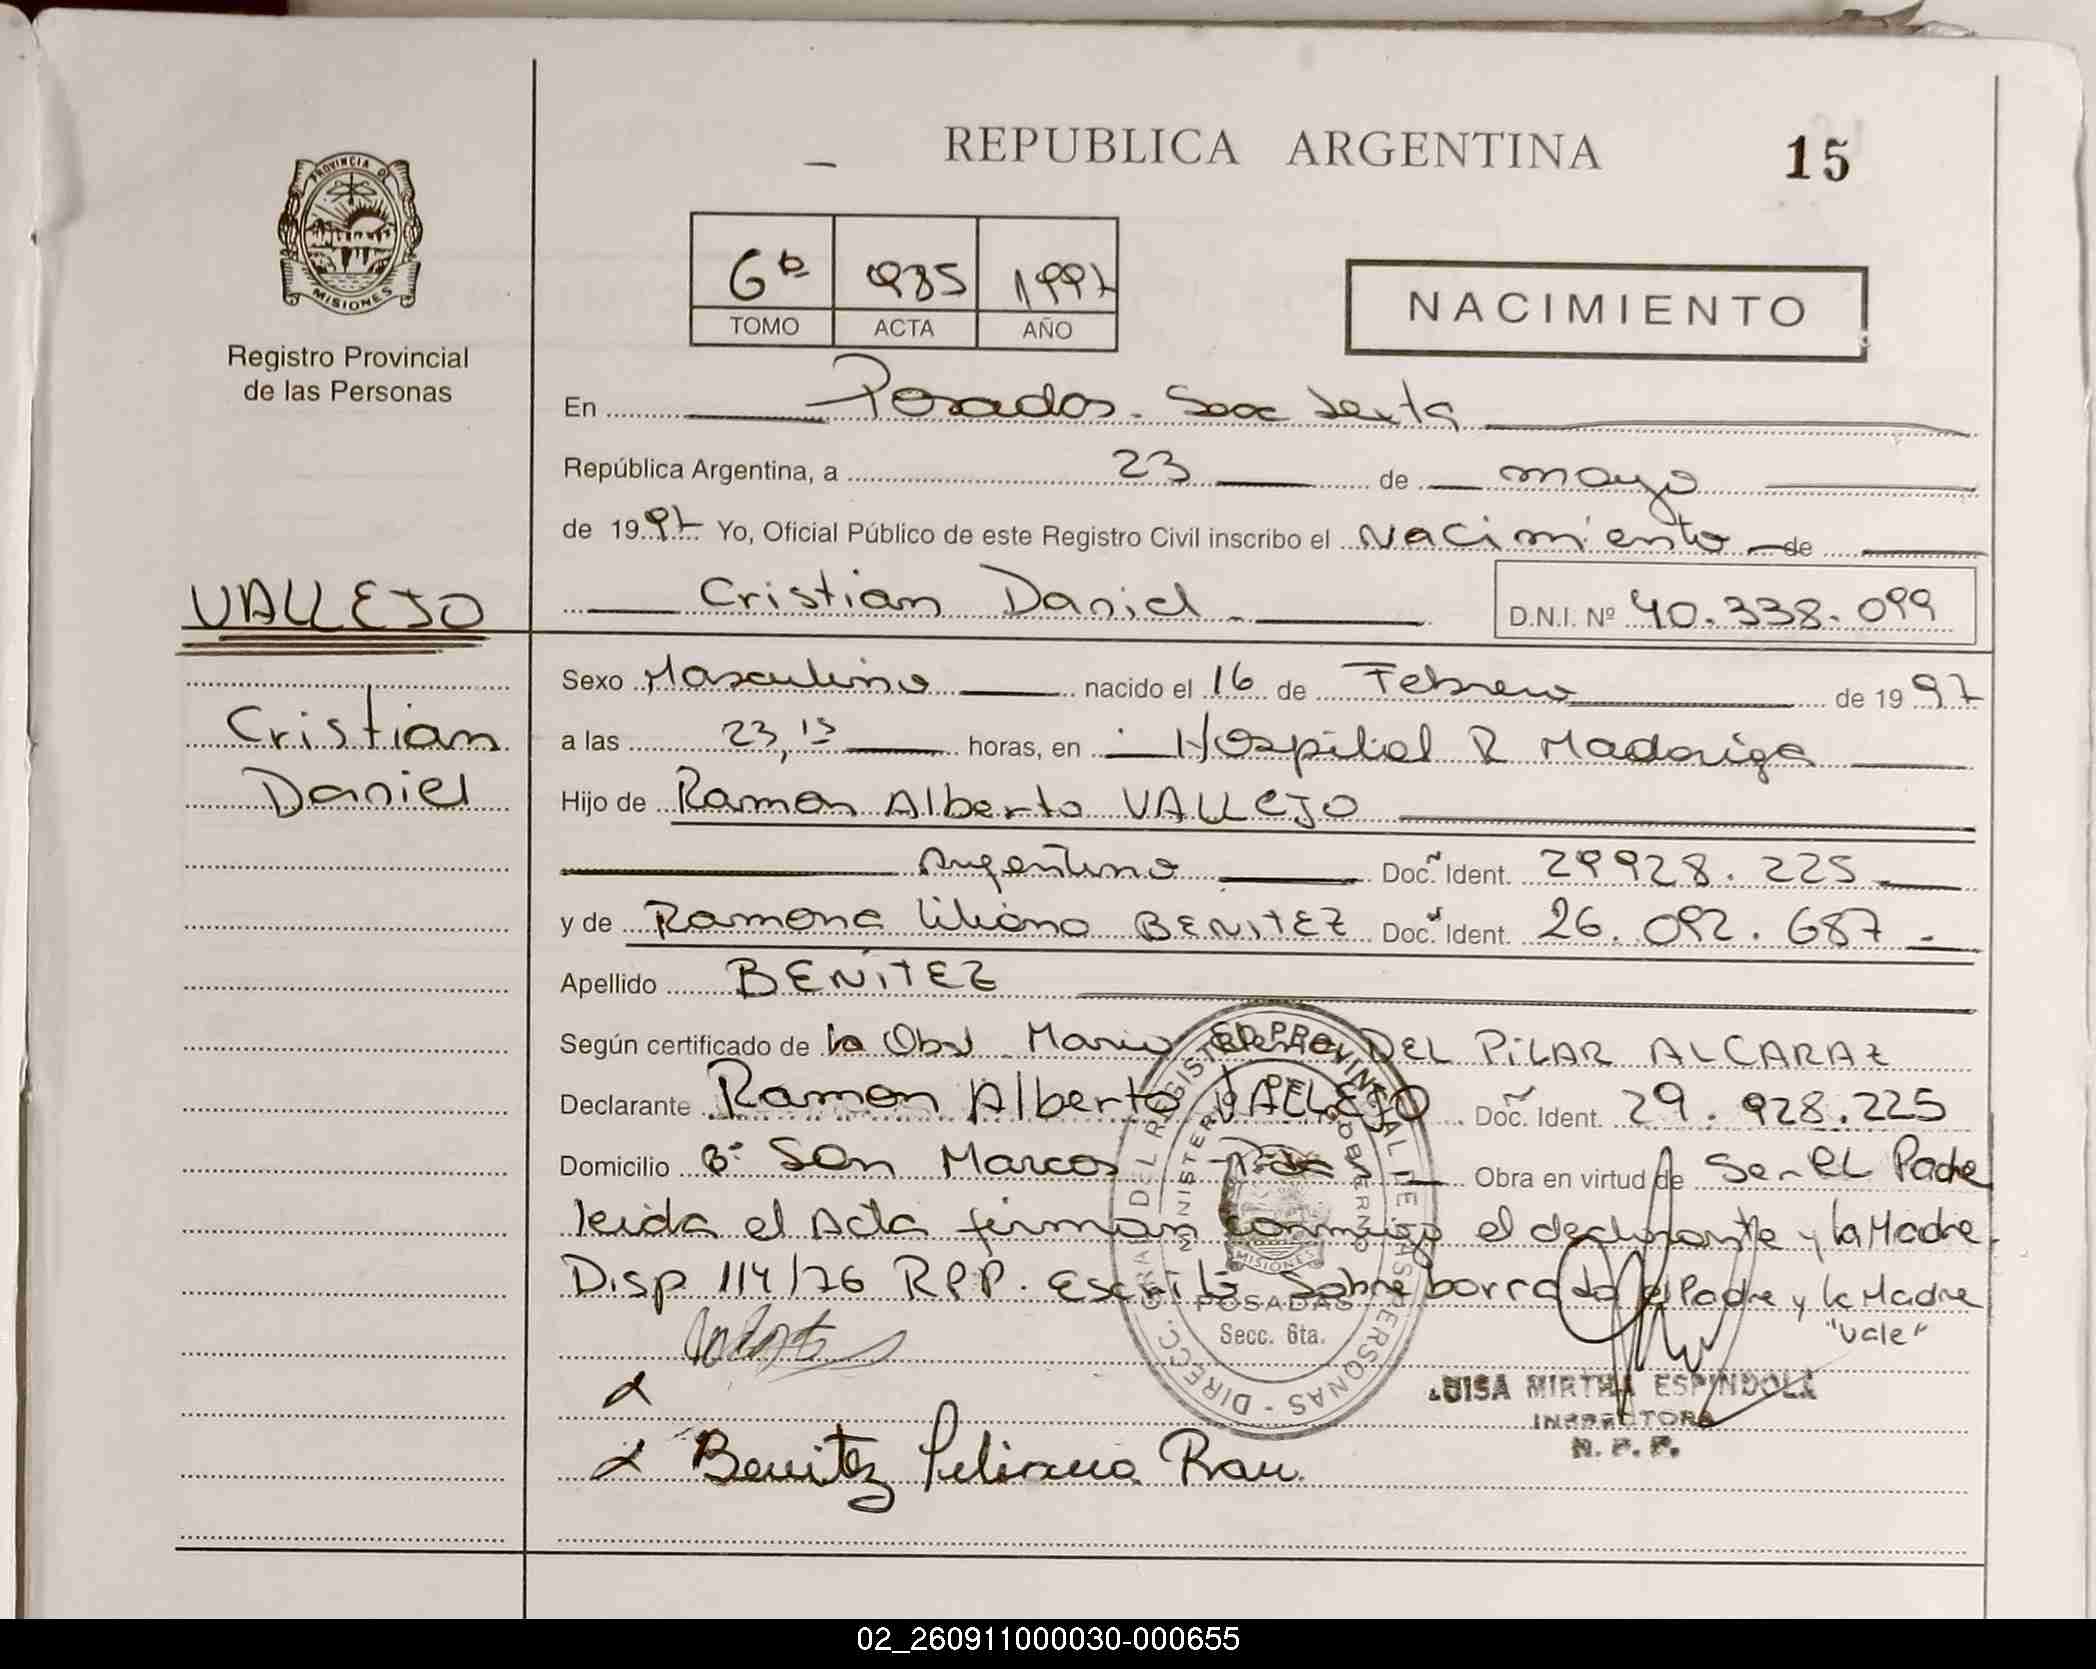 REPUBLICA ARGENTINA
15
PROVINCIA DE
MISIONES
Registro Provincial
de las Personas
6ta 985 1997
TOMO ACTA AÑO
NACIMIENTO
En Posadas - Secc Sexta
República Argentina, a 23 de mayo
de 1997 Yo, Oficial Público de este Registro Civil inscribo el Nacimiento de
Cristian Daniel D.N.I. Nº 40.338.099
VALLEJO
Cristian
Daniel
Sexo Masculino nacido el 16 de Febrero de 1997
a las 23,15 horas, en Hospital R Madariaga
Hijo de Ramon Alberto VALLEJO
Argentino Doc. Ident. 29928.225
y de Ramona Liliana BENITEZ Doc. Ident. 26.092.687
Apellido BENITEZ
Según certificado de la Obst Maria DEL PILAR ALCARAZ
Declarante Ramon Alberto VALLEJO Doc. Ident. 29.928.225
Domicilio Bº San Marcos Pdas Obra en virtud de Ser El Padre
leida el Acta firman conmigo el declarante y la Madre
Disp 114/76 RPP. Escrito Sobre borrado el Padre y la Madre
"Vale"
DIRECC. GRAL DEL REGISTRO PROVINCIAL DE LAS PERSONAS
MINISTERIO DE GOBIERNO
MISIONES
POSADAS
Secc. 6ta.
LUISA MIRTHA ESPINDOLA
INSPECTORA
R. P. P.
Benitez Liliana Ram.
02_260911000030-000655